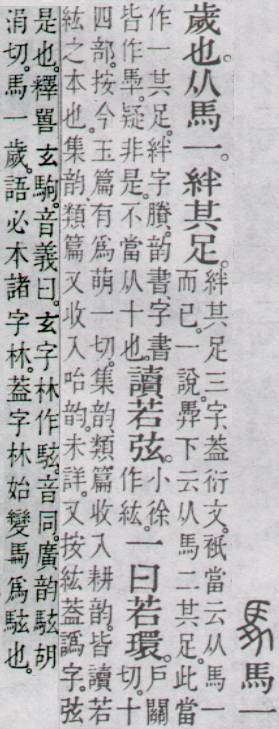 馬一
歲也。从馬一。絆其足。絆其足三字、蓋衍文。衹當云从馬一
而已。一說。馵下云从馬二其足。此當
作一其足。絆字賸。韵書字書
皆作。疑非是。不當从十也。讀若弦。小徐作紘。一曰若環。戶關切。十
四部。按今玉篇有爲萌一切。集韵類篇收入耕韵。皆讀若
紘之本也。集韵類篇又收入咍韵。未詳。又按紘蓋譌字。弦
是也。釋嘼玄駒。音義曰。玄字林作。音同。廣韵胡
涓切。馬一歲。語必本諸字林。蓋字林始變爲也。